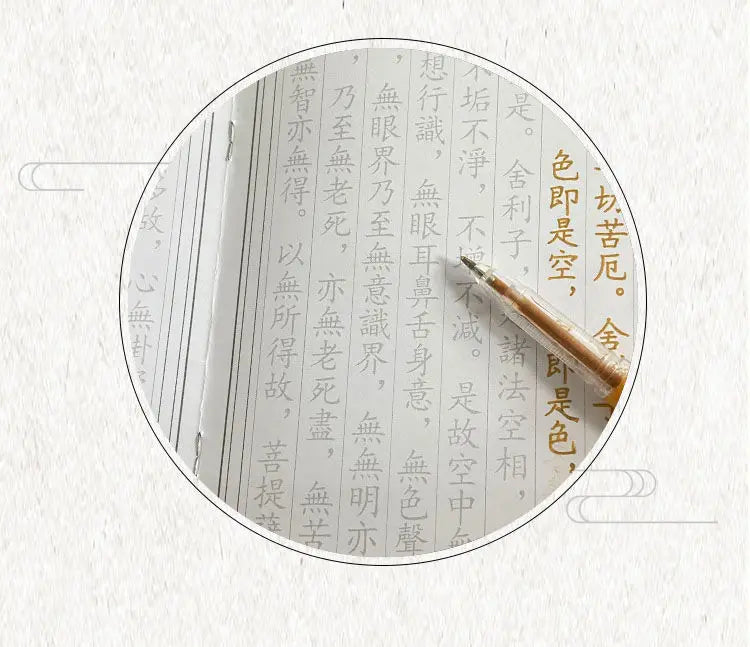 切苦厄。舍
色即是空，即是色，
是。舍利子，諸法空相，
不垢不淨，不增不減。是故空中無
想行識，無眼耳鼻舌身意，無色聲
，無眼界乃至無意識界，無無明亦
，乃至無老死，亦無老死盡，無苦
無智亦無得。以無所得故，菩提薩
故，心無掛